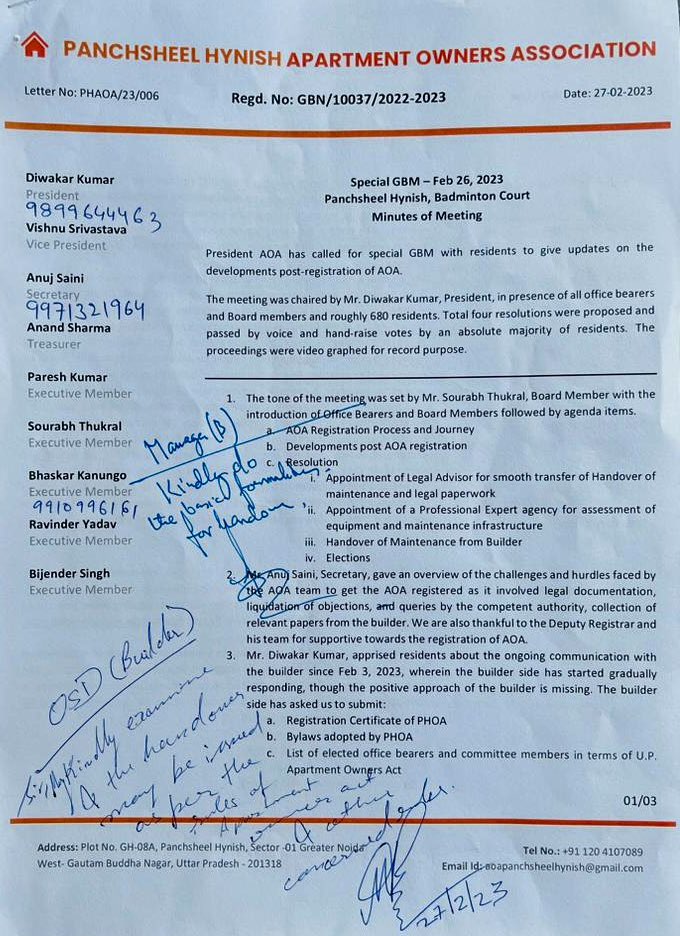 PANCHSHEEL HYNISH APARTMENT OWNERS ASSOCIATION
Letter No: PHAOA/23/006
Regd. No: GBN/10037/2022-2023
Date: 27-02-2023
Diwakar Kumar
President
9899644463
Vishnu Srivastava
Vice President
Anuj Saini
Secretary
9971321964
Anand Sharma
Treasurer
Paresh Kumar
Executive Member
Sourabh Thukral
Executive Member
Bhaskar Kanungo
Executive Member
9910996161
Ravinder Yadav
Executive Member
Bijender Singh
Executive Member
Special GBM – Feb 26, 2023
Panchsheel Hynish, Badminton Court
Minutes of Meeting
President AOA has called for special GBM with residents to give updates on the
developments post-registration of AOA.
The meeting was chaired by Mr. Diwakar Kumar, President, in presence of all office bearers
and Board members and roughly 680 residents. Total four resolutions were proposed and
passed by voice and hand-raise votes by an absolute majority of residents. The
proceedings were video graphed for record purpose.
1. The tone of the meeting was set by Mr. Sourabh Thukral, Board Member with the
introduction of Office Bearers and Board Members followed by agenda items.
a. AOA Registration Process and Journey
b. Developments post AOA registration
c. Resolution
i. Appointment of Legal Advisor for smooth transfer of Handover of
maintenance and legal paperwork
ii. Appointment of a Professional Expert agency for assessment of
equipment and maintenance infrastructure
iii. Handover of Maintenance from Builder
iv. Elections
2. Mr. Anuj Saini, Secretary, gave an overview of the challenges and hurdles faced by
the AOA team to get the AOA registered as it involved legal documentation,
liquidation of objections, and queries by the competent authority, collection of
relevant papers from the builder. We are also thankful to the Deputy Registrar and
his team for supportive towards the registration of AOA.
3. Mr. Diwakar Kumar, apprised residents about the ongoing communication with
the builder since Feb 3, 2023, wherein the builder side has started gradually
responding, though the positive approach of the builder is missing. The builder
side has asked us to submit:
a. Registration Certificate of PHOA
b. Bylaws adopted by PHOA
c. List of elected office bearers and committee members in terms of U.P.
Apartment Owners Act
01/03
Manager (B)
Kindly do
the basic formalities
for handover
OSD (Builder)
Sir, Kindly examine
& the handover
may be issued
as per the
rules of
Apartment
owners act
& other
concerned
27/2/23
Address: Plot No. GH-08A, Panchsheel Hynish, Sector -01 Greater Noida
West- Gautam Buddha Nagar, Uttar Pradesh - 201318
Tel No.: +91 120 4107089
Email Id: aoapanchsheelhynish@gmail.com